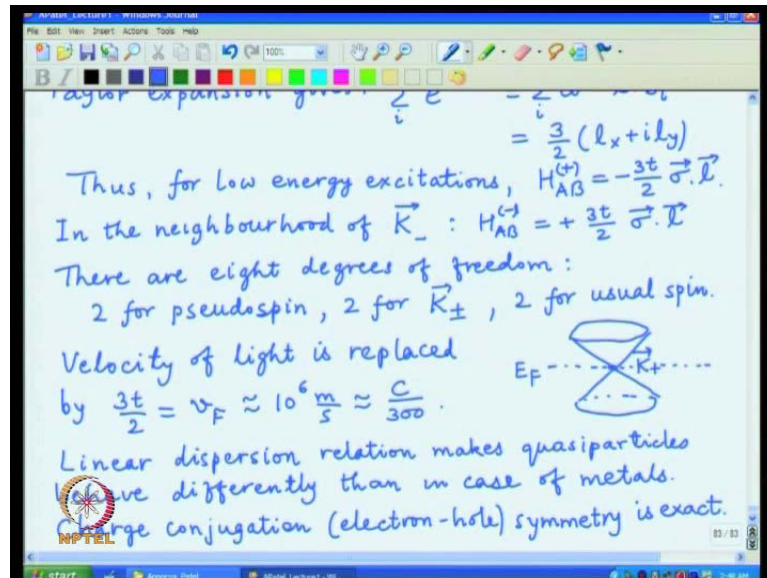 APatel_Lecture1 - Windows Journal
File Edit View Insert Actions Tools Help
100%
B I
Taylor expansion
= 3/2 (l_x + i l_y)
Thus, for low energy excitations, H_{AB}^{(+)} = -3t/2 σ⃗.l⃗.
In the neighbourhood of K⃗_- : H_{AB}^{(-)} = + 3t/2 σ⃗.l⃗
There are eight degrees of freedom:
2 for pseudospin, 2 for K⃗_±, 2 for usual spin.
Velocity of light is replaced
E_F K⃗_+
by 3t/2 = v_F ≈ 10^6 m/s ≈ C/300 .
Linear dispersion relation makes quasiparticles
behave differently than in case of metals.
Charge conjugation (electron-hole) symmetry is exact.
NPTEL
83 / 83
start